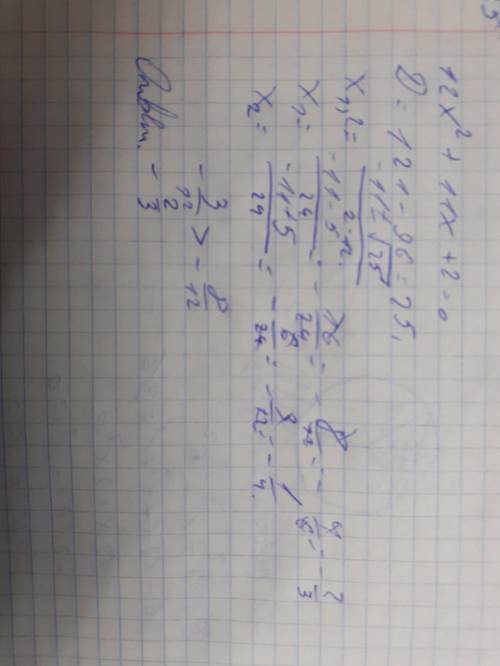 12x² + 11x + 2 = 0
D = 121 - 96 = 25,
x₁,₂ = (-11 ± √25) / (2·12)
x₁ = (-11 - 5) / 24 = -16/24 = -8/12 = -4/6 = -2/3
x₂ = (-11 + 5) / 24 = -6/24 = -3/12 = -1/4.
-3/12 > -8/12
Ответ. -2/3